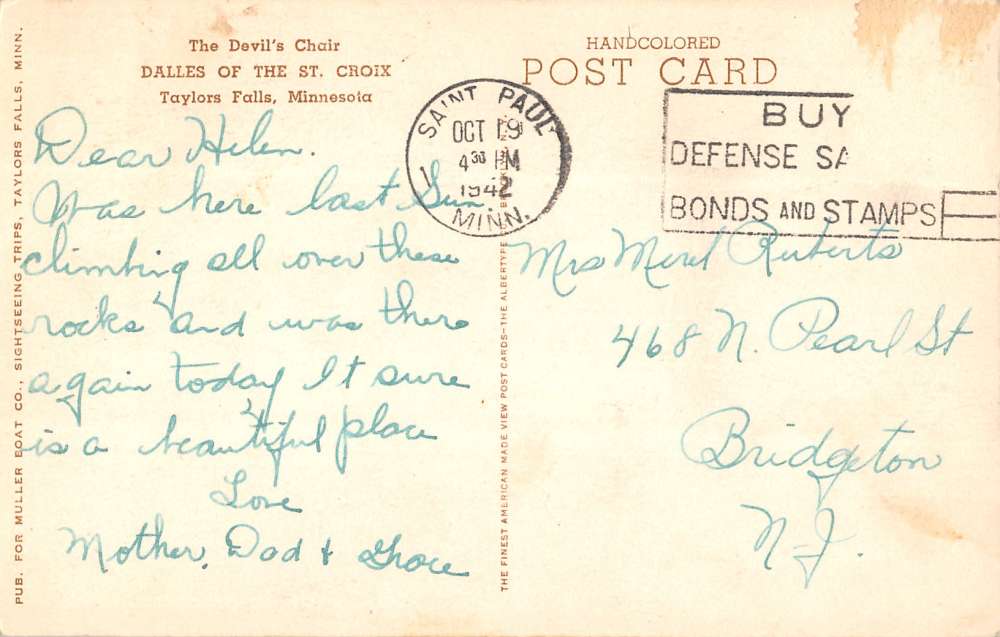 The Devil's Chair
DALLES OF THE ST. CROIX
Taylors Falls, Minnesota
HANDCOLORED
POST CARD
SAINT PAUL
OCT 19
4 30 PM
1942
MINN.
1
BUY
DEFENSE SA
BONDS AND STAMPS
Dear Helen.
Was here last Sun.
climbing all over these
rocks and was there
again today It sure
is a beautiful place
Love
Mother, Dad &
Mrs Ruberts
468 N. Pearl St
Bridgeton
N.J.
PUB. FOR MULLER BOAT CO., SIGHTSEEING TRIPS, TAYLORS FALLS, MINN.
THE FINEST AMERICAN MADE VIEW POST CARDS—THE ALBERTYPE